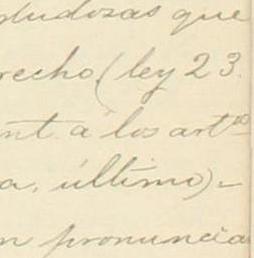 dudozas que
recho (ley 23.
nt. a los artos
a, último)=
n pronuncia